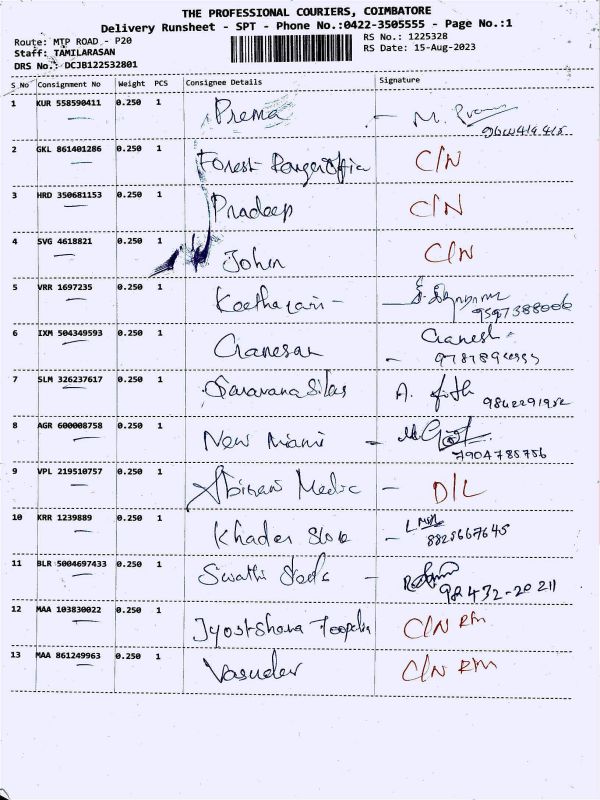 THE PROFESSIONAL COURIERS, COIMBATORE
Delivery Runsheet - SPT - Phone No.:0422-3505555 - Page No.:1
Route: MTP ROAD - P20
RS No.: 1225328
Staff: TAMILARASAN
RS Date: 15-Aug-2023
DRS No.: DCJB122532801
S_No Consignment No Weight PCS Consignee Details Signature
1 KUR 558590411 0.250 1 Prema - M.
2 GKL 861401286 0.250 1 Forest C/N
3 HRD 350681153 0.250 1 Pradeep C/N
4 SVG 4618821 0.250 1 John C/N
5 VRR 1697235 0.250 1
9597388006
6 IXM 504349593 0.250 1 Ganesan Ganesh
7 SLM 326237617 0.250 1 Saravana Silas A.
8 AGR 600008758 0.250 1 New Miami -
7904785756
9 VPL 219510757 0.250 1 - D/L
10 KRR 1239889 0.250 1 Khader Store -
8825667645
11 BLR 5004697433 0.250 1 Swathi -
98432-20211
12 MAA 103830022 0.250 1 C/N RM
13 MAA 861249963 0.250 1 Vasudev C/N RM